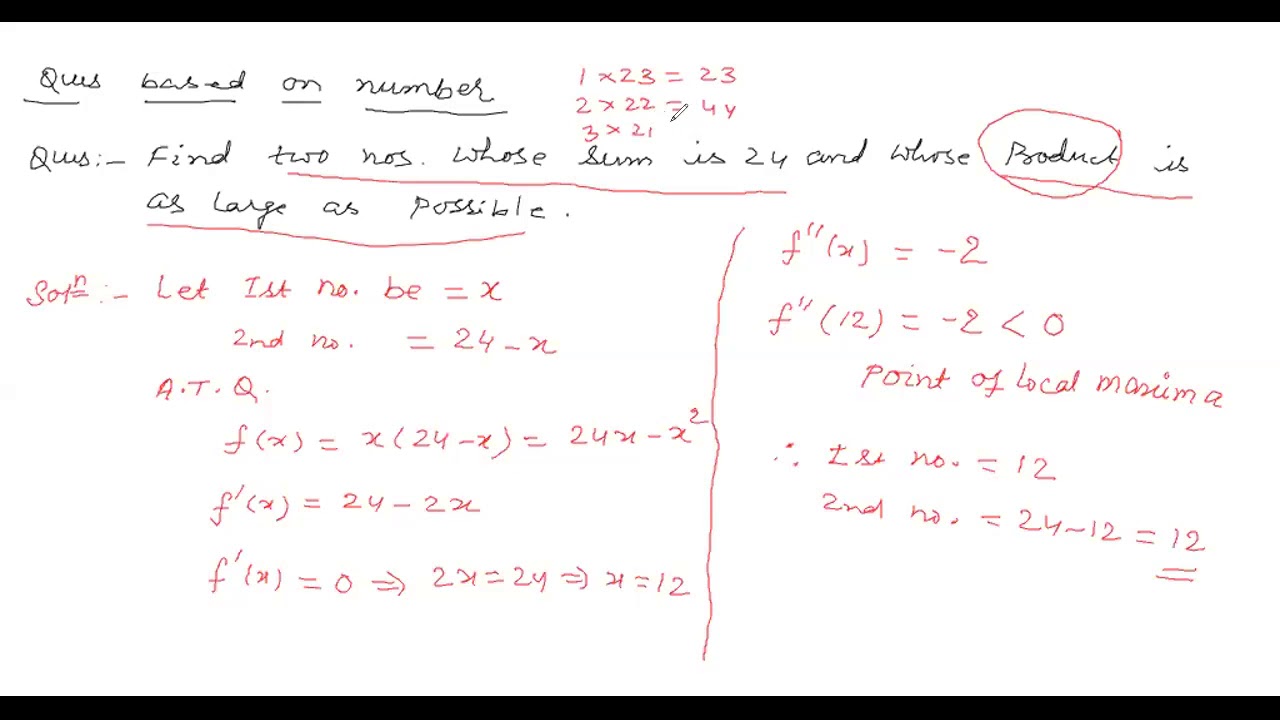 Ques based on number
1 × 23 = 23
2 × 22 = 44
3 × 21
Ques:- Find two nos. whose sum is 24 and whose Product is
as large as possible.
Solⁿ:- Let Ist no. be = x
2nd no. = 24-x
A.T.Q.
f(x) = x(24-x) = 24x-x²
f'(x) = 24-2x
f'(x) = 0 ⇒ 2x=24 ⇒ x=12
f''(x) = -2
f''(12) = -2 < 0
Point of local maxima
∴ Ist no. = 12
2nd no. = 24-12 = 12